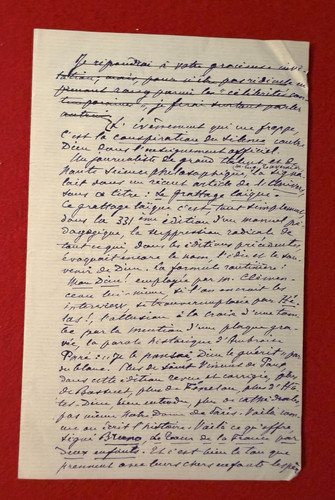 Je répondrai à votre gracieuse invi-
tation, mais, pour n'être pas ridicule en
prenant rang parmi les "célébrités con-
temporaines", je ferai surtout parler
L'évènement qui me frappe,
c'est la conspiration du silence contre
Dieu dans l'enseignement officiel.
Un journaliste de grand talent et de
haute science philosophique, le signa-
lait dans un récent article de
sous ce titre : Le grattage laïque.
Ce grattage laïque c'est tout simplement,
dans la 331ème édition d'un manuel pé-
dagogique, la suppression radicale de
tout ce qui, dans les éditions précédentes,
évoquait encore le nom, l'idée et le sou-
venir de Dieu. La formule routinière :
Mon Dieu ! employée par M. Clemen-
ceau lui-même, si l'on en croit les
interviews, se trouve remplacée par Hé-
las !, l'allusion à la croix d'une tom-
be par la mention d'une plaque gra-
vée, la parole historique d'Ambroise
Paré : "Je le pansai, Dieu le guérit" par
du blanc. Plus de Saint Vincent de Paul
dans cette édition revue et corrigée, plus
de Bossuet, plus de Fénelon, plus d'Hô-
tel-Dieu bien entendu, plus de cathédrales,
pas même Notre Dame de Paris. Voilà com-
me on écrit l'histoire. Voilà ce qu'offre,
signé Bruno, Le Tour de la France par
Deux enfants. Et c'est bien le tour que
prennent avec leurs chers enfants les